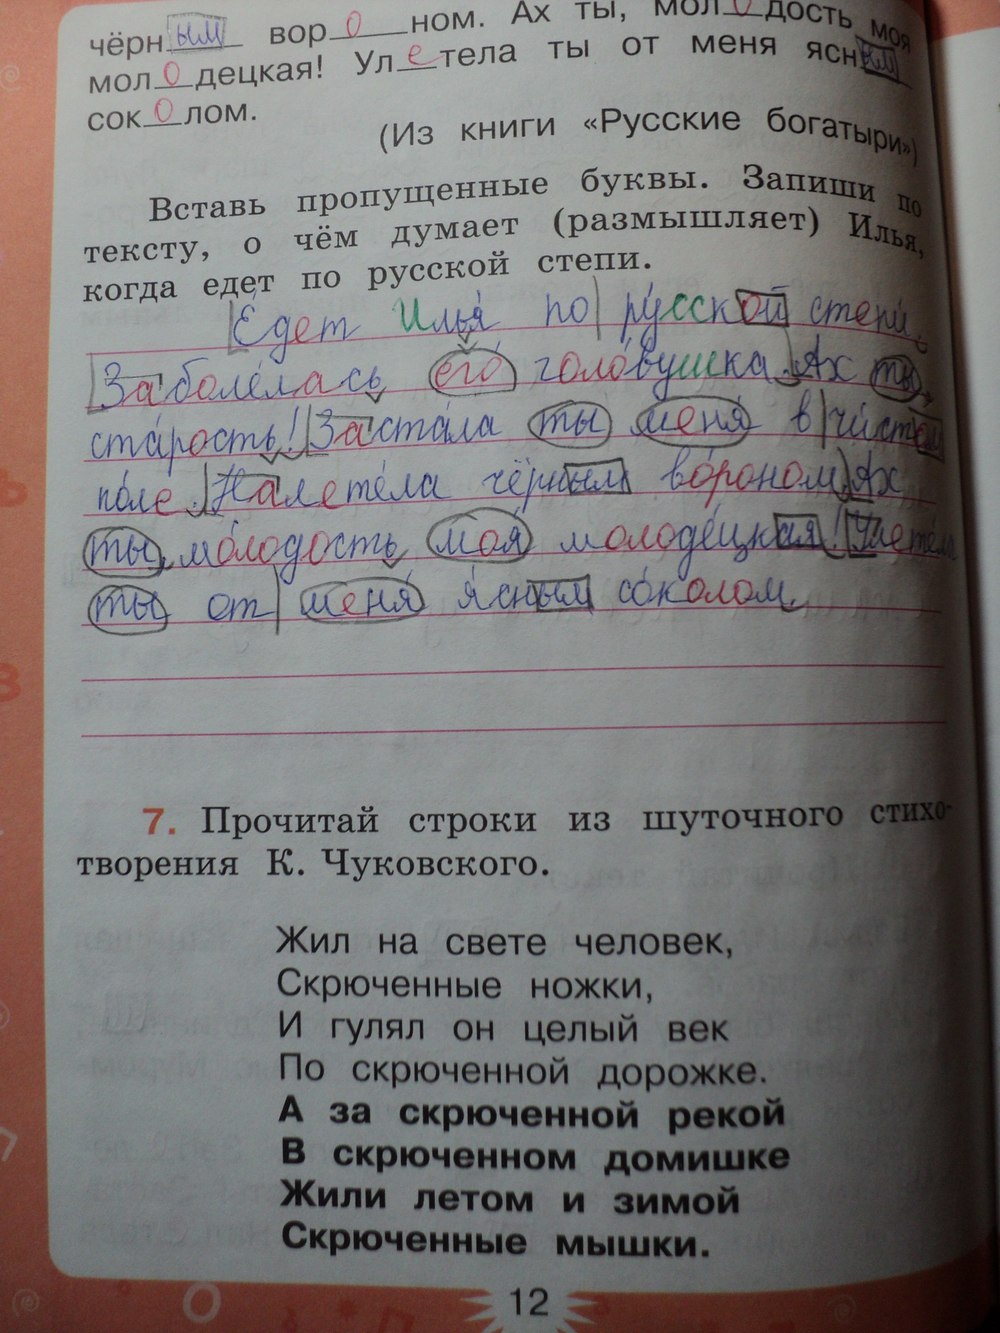 чёрным вороном. Ах ты, молодость моя
молодецкая! Улетела ты от меня ясным
соколом.
(Из книги «Русские богатыри»)
Вставь пропущенные буквы. Запиши по
тексту, о чём думает (размышляет) Илья,
когда едет по русской степи.
Едет Илья по русской степи.
Заболелась его головушка. Ах ты,
старость! Застала ты меня в чистом
поле. Налетела чёрным вороном. Ах
ты, молодость моя молодецкая! Улетела
ты от меня ясным соколом.
7. Прочитай строки из шуточного стихо-
творения К. Чуковского.
Жил на свете человек,
Скрюченные ножки,
И гулял он целый век
По скрюченной дорожке.
А за скрюченной рекой
В скрюченном домишке
Жили летом и зимой
Скрюченные мышки.
12